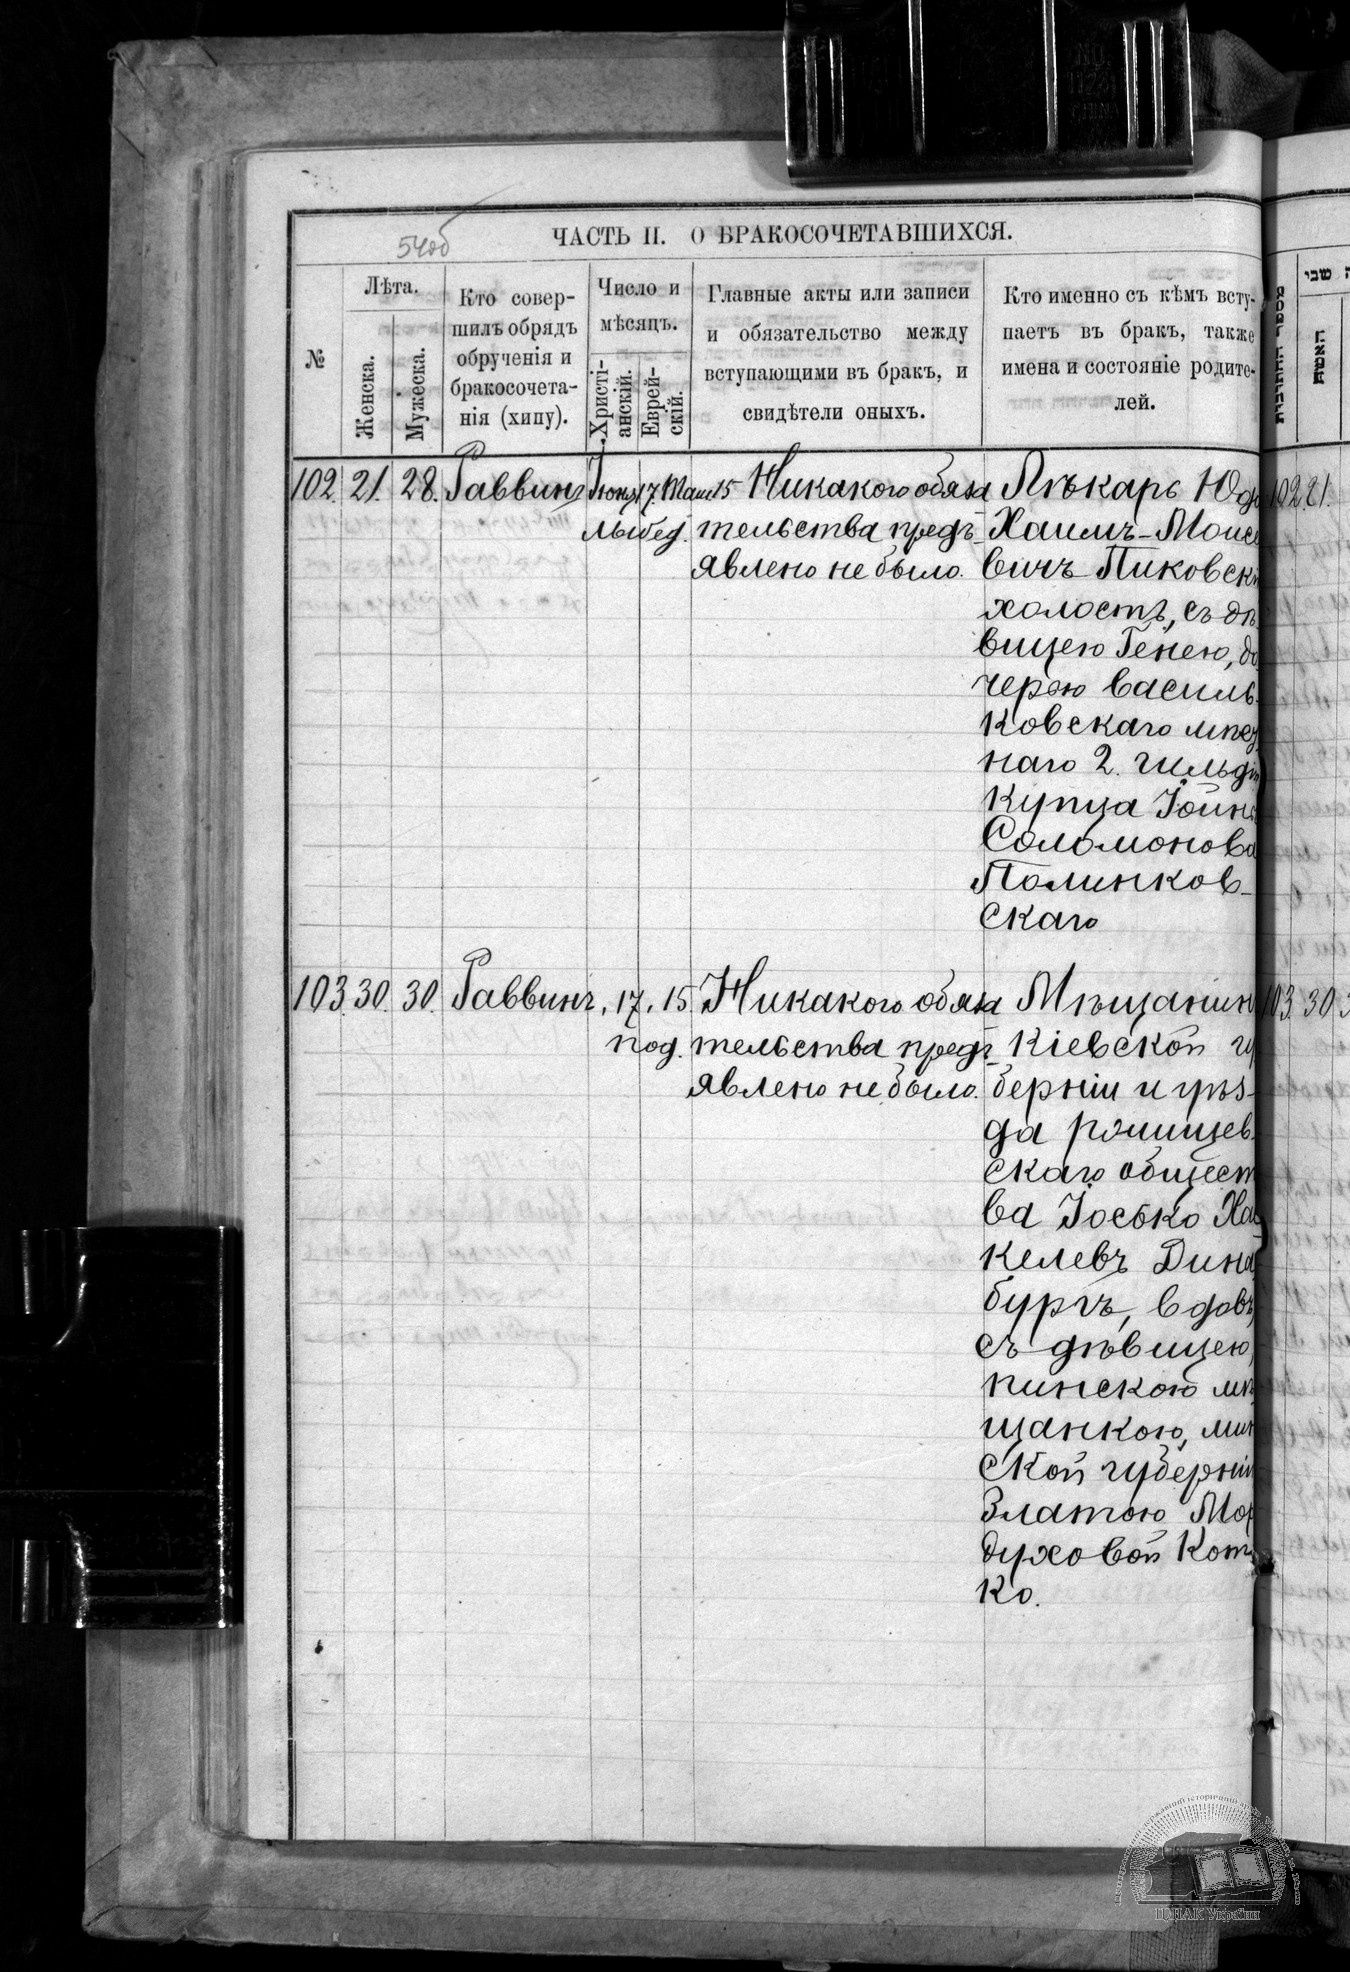 54об
ЧАСТЬ II. О БРАКОСОЧЕТАВШИХСЯ.
№
Лѣта.
Женска.
Мужеска.
Кто совер-
шилъ обрядъ
обрученія и
бракосочета-
нія (хипу).
Число и
мѣсяцъ.
Христі-
анскій.
Еврей-
скій.
Главные акты или записи
и обязательство между
вступающими въ бракъ, и
свидѣтели оныхъ.
Кто именно съ кѣмъ всту-
паетъ въ бракъ, также
имена и состояніе родите-
лей.
102. 21. 28. Раввинъ Іюня 17. Там 15 Никакого обяза Лѣкарь Юдо
лыбед. тельства предъ- Хаимъ-Моисе
явлено не было. вичъ Пиковскі
холостъ, съ дѣ-
вицею Генею, до
черью василь-
ковскаго
наго 2. гильдіи
купца Іойны
Соломонова
Полинков-
скаго
103. 30. 30. Раввинъ, 17, 15. Никакого обяза Мѣщанинъ
под. тельства предъ- Кіевской гу
явлено не было. берніи и уѣз-
да
скаго общест
ва Іосько Ха
келевъ Дина
бургъ, вдовъ,
съ дѣвицею,
пинскою мѣ
щанкою, мин
ской губерніи
Златою Мор
духовой Кот
ко.
102 21.
103. 30 3
האשה
ЦДІАК України